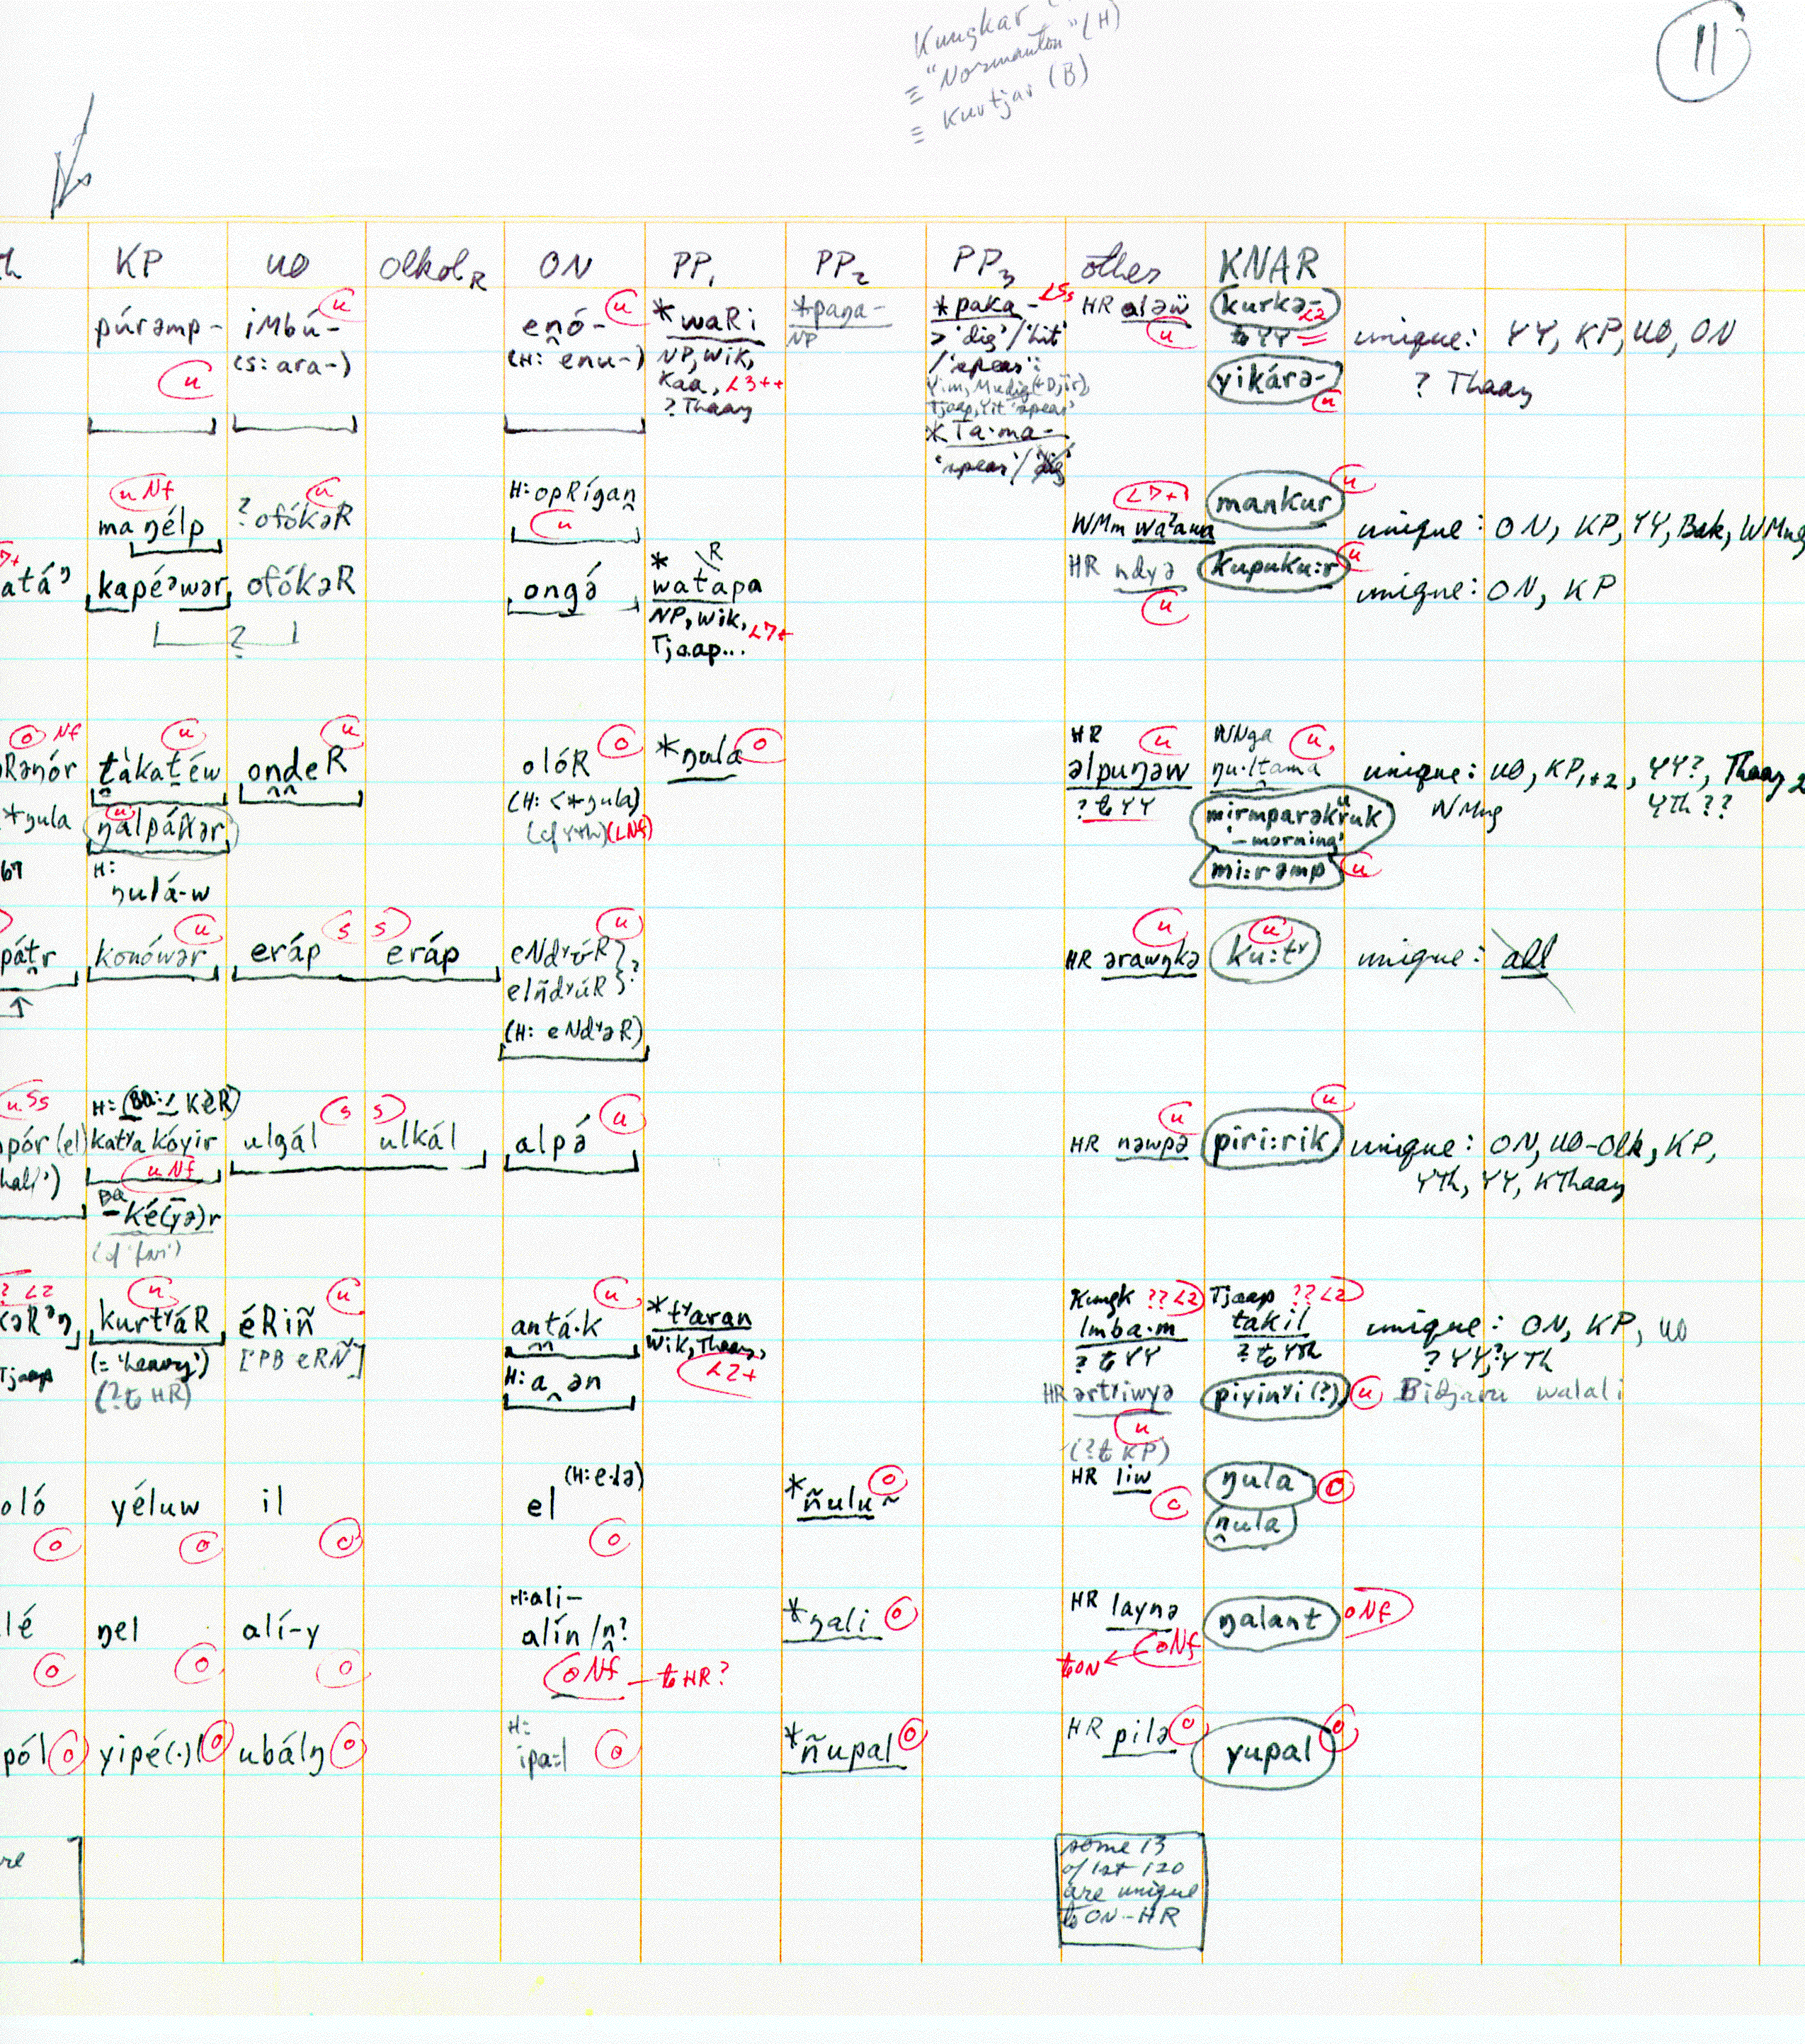 Kungkar
≡ "Normanton" (H)
≡ Kurtjar (B)
11
KP UO Olkol R ON PP1 PP2 PP3 other KNAR
púrəmp- u
iMbú- u
(s: ara-)
enó- u
(H: enu-)
*waRi
NP, Wik,
Kaa, L3++
? Thaay
*paŋa-
NP
*paka- L5s
> 'dig'/'hit'
/'spear':
Tjaap, Yit 'spear'
*Ta·ma-
'spear'/'dig'
HR aləẅ
u
kurkə- L2
to YY
yikárə-
u
unique: YY, KP, UO, ON
? Thaay
u Nf
maŋélp
? ofókəR u
H: opRígan
u
L7+
WMm waʔawa
mankur u
unique: ON, KP, YY, Bak, WMng
atá
kapéəwər
ofókəR
?
ongə́
* R
watapa
NP, Wik, L7+
Tjaap...
HR ndyə
u
kupuku:r u
unique: ON, KP
o Nf
Rənór
*ŋula
67
u
t̪àkat̪éw
u
ŋalpáR̃ər
H:
ŋulá-w
u
ondeR
olóR o
(H: <*ŋula)
(cf YTh) (LNf)
*ŋula o
HR u
əlpuŋəw
? to YY
WNga u
ŋu·ltama
mirmparəkruk
'-morning'
mi:rəmp u
unique: UO, KP1+2, YY?, Thaay 2
WMng YTh ??
pátr
↑
konówər u
eráp s
s eráp
u
eNdʸúR } ?
elñdʸúR }
(H: eNdʸəR)
u
HR ərawŋkə
u
ku:tʸ
unique: all
u Ss
pór (el)
H: (Ba: KəR)
katʸa kóyir
u Nf
Ba
-ké(yə)r
ulgál s
s ulkál
alpə́ u
u
HR nəwpə
piri:rik u
unique: ON, UO-Olk, KP,
YTh, YY, KThaay
? L2
Tjaap
u
kurtʸáR
(= 'heavy')
(? to HR)
u
éRiñ
['PB eRÑ]
u
antá·k
H: a ən
*tʸaran
Wik, Thaay,
L2+
Kungk ?? L2
lmba·m
? to YY
HR ərtʸiwyə
u
(? to KP)
Tjaap ?? L2
takil
? to YTh
piyinʸi (?) u
unique: ON, KP, UO
? YY, ? YTh
Bidjara walali
oló o
yéluw o
il o
(H: e·lə)
el o
*ñulu~ o
HR liw
o
ŋula o
n̪ula
lé o
ŋel o
alí-y o
H: ali-
alín/n̪?
o Nf - to HR?
*ŋali o
HR laynə
o Nf
to ON ←
ŋalant o Nf
pól o
yipé(·)l o
ubálŋ o
H:
ipa:l o
*ñupal o
HR pilə o
yupal o
some 13
of 1st 120
are unique
to ON-HR